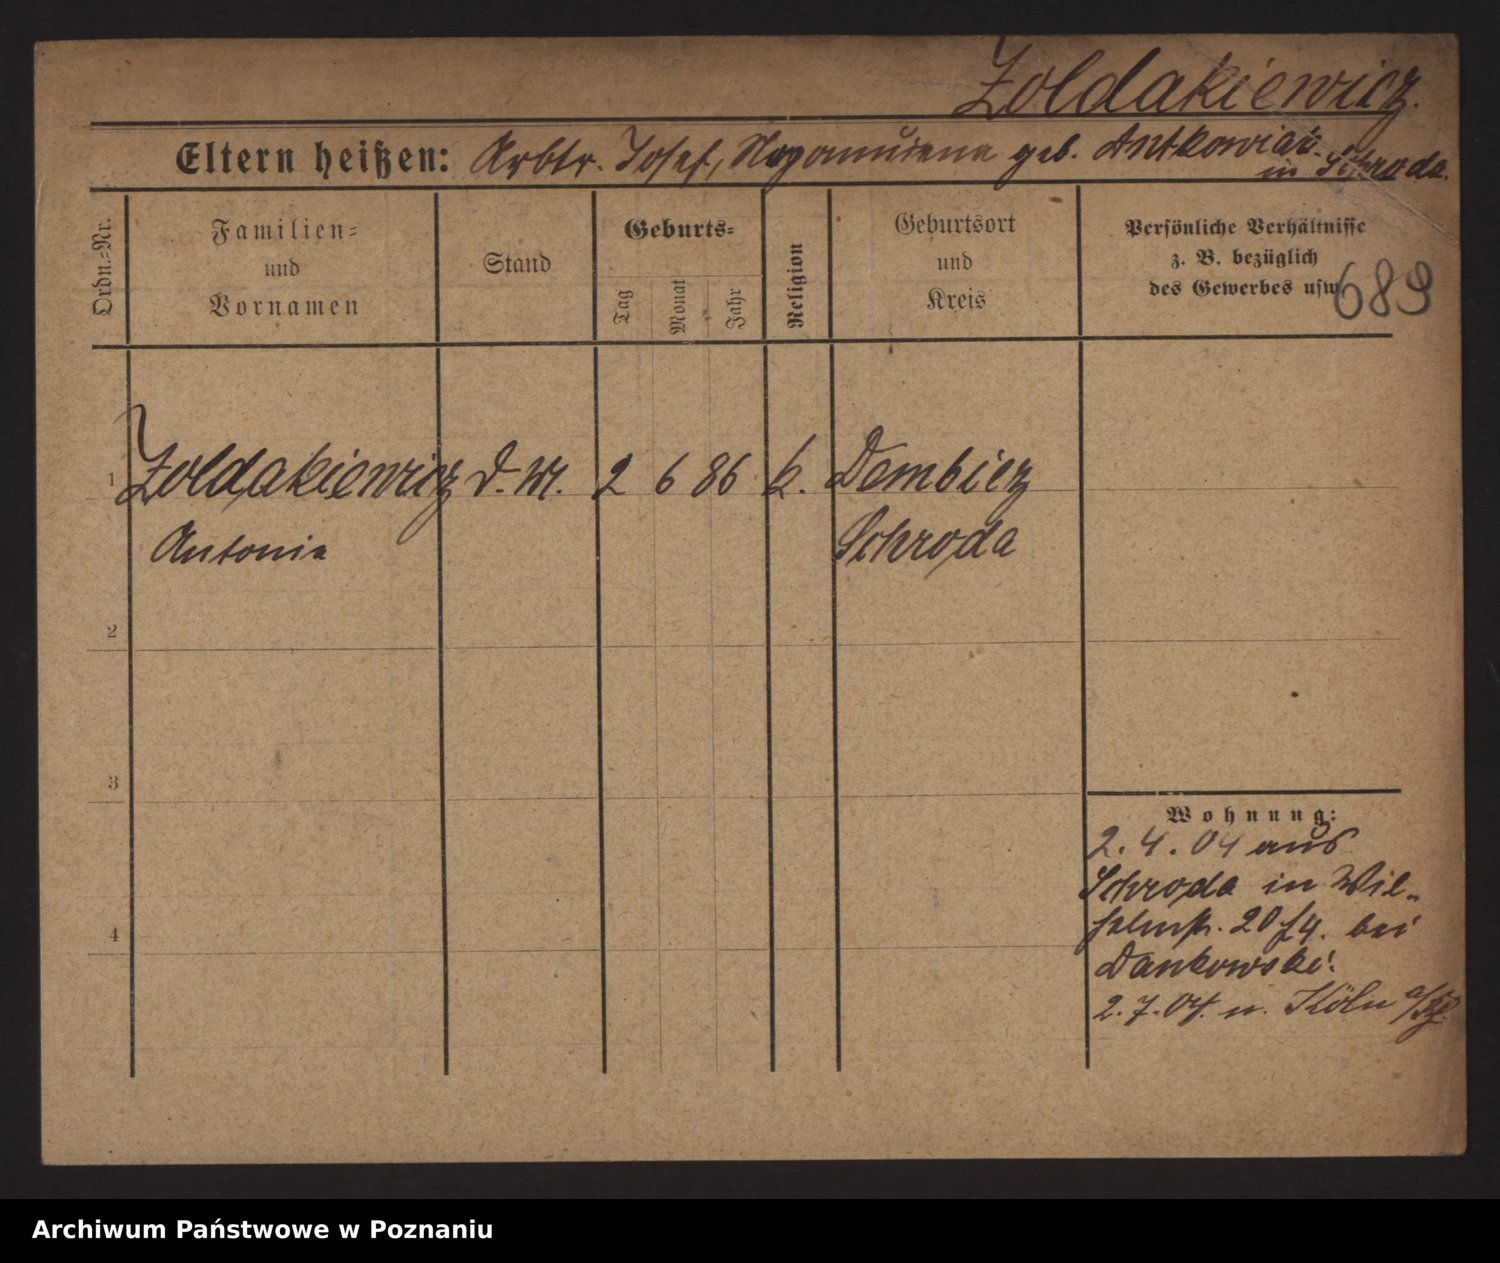 Zoldakiewicz.
Eltern heißen: Arbtr. Josef, Nepomucena geb. Antkowiak
in Schroda.
Ordn.-Nr.
Familien-
und
Vornamen
Stand
Geburts-
Tag
Monat
Jahr
Religion
Geburtsort
und
Kreis
Persönliche Verhältnisse
z. B. bezüglich
des Gewerbes usw.
689
1 Zoldakiewicz D. M. 2 6 86 k. Dembicz
Antonie Schroda
2
3
4
Wohnung:
2. 4. 04 aus
Schroda in Wil-
helmstr. 20 bei
Dankowski.
2. 7. 04. n. Köln a/Rh.
Archiwum Państwowe w Poznaniu